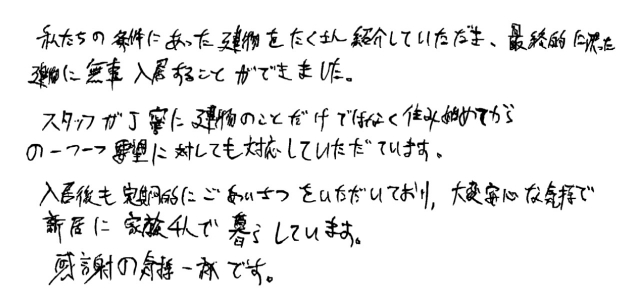 私たちの条件にあった建物をたくさん紹介していただき、最終的に決った
建物に無事入居することができました。
スタッフが丁寧に建物のことだけではなく住み始めてから
の一つ一つ要望に対しても対応していただています。
入居後も定期的にごあいさつをいただいており、大変安心な気持で
新居に家族4人で暮らしています。
感謝の気持一杯です。